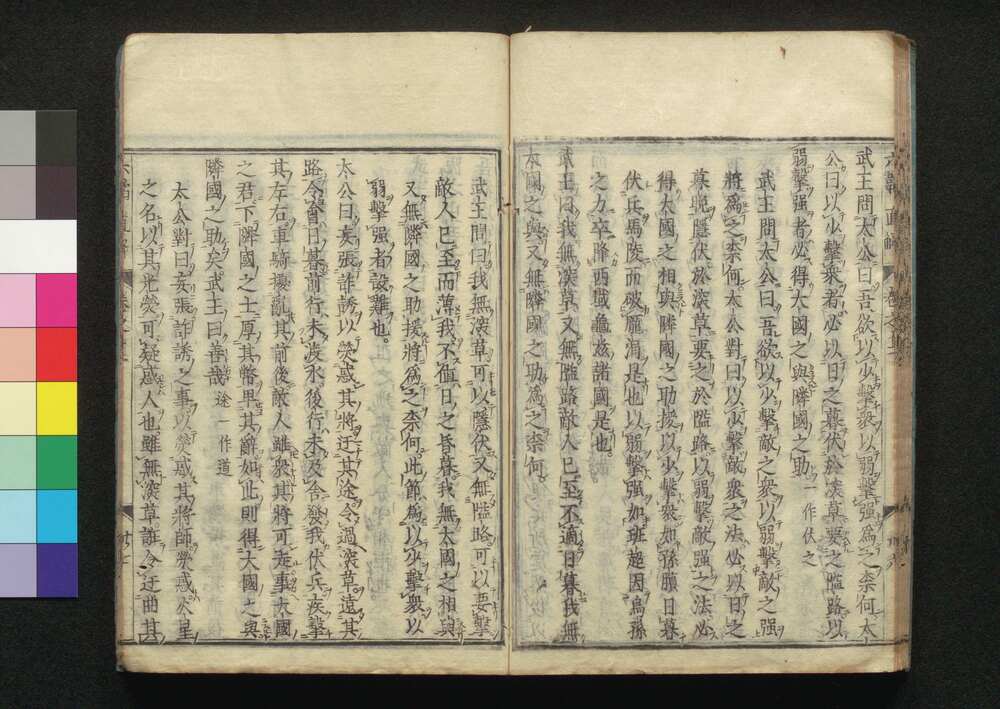 武王問太公曰吾欲以少擊衆以弱擊强爲之奈何太
公曰以少擊衆者必以日之暮伏於深草要之隘路以
弱擊强者必得大國之與隣國之助一作伏之
武王問太公曰吾欲以少擊敵之衆以弱擊敵之强
將爲之奈何太公對曰以少擊敵衆之法必以日之
暮晚隱伏於深草要之於隘路以弱擊敵强之法必
得大國之相與隣國之助援以少擊衆如孫臏日暮
伏兵馬陵而破龐涓是也以弱擊强如班超因烏孫
之力卒降西域龜玆諸國是也
武王曰我無深草又無隘路敵人已至不適日暮我無
大國之與又無隣國之助爲之奈何
武王問曰我無深草可以隱伏又無隘路可以要擊
敵人已至而薄我不値日之昏暮我無大國之相與
又無隣國之助援將爲之奈何此節爲以少擊衆以
弱擊强者設難也
太公曰妄張詐誘以熒惑其將迂其途令過深草遠其
路令會日暮前行未渡水後行未及舍發我伏兵疾擊
其左右車騎擾亂其前後敵人雖衆其將可走事大國
之君下隣國之士厚其幣卑其辭如此則得大國之與
隣國之助矣武王曰善哉途一作道
太公對曰妄張詐誘之事以熒惑其將師熒惑火星
之名以其光熒可疑惑人也雖無深草誰令迂曲其